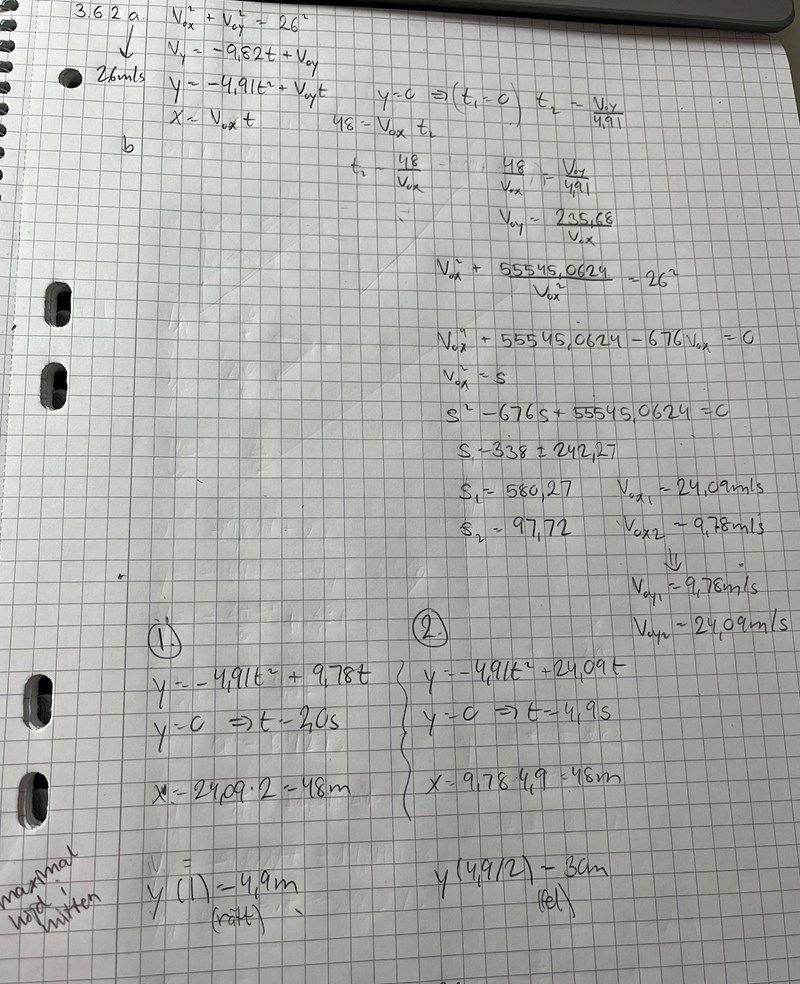 3.62 a. V₀ₓ² + V₀y² = 26²
↓ Vy = -9,82t + V₀y
26m/s y = -4,91t² + V₀yt y=0 ⇒ (t₁=0) t₂ = V₀y/4,91
x = V₀ₓ t 48 = V₀ₓ t₂
b
t₂ = 48/V₀ₓ 48/V₀ₓ = V₀y/4,91
V₀y = 235,68/V₀ₓ
V₀ₓ² + 55545,0624/V₀ₓ² = 26²
V₀ₓ⁴ + 55545,0624 - 676V₀ₓ = 0
V₀ₓ² = s
s² - 676s + 55545,0624 = 0
s = 338 ± 242,27
s₁ = 580,27 V₀ₓ₁ = 24,09m/s
s₂ = 97,72 V₀ₓ₂ = 9,78m/s
⇓
V₀y₁ = 9,78m/s
V₀y₂ = 24,09m/s
①. ②.
y = -4,91t² + 9,78t y = -4,91t² + 24,09t
y=0 ⇒ t = 2,0s y=0 ⇒ t = 4,9s
x = 24,09·2 = 48m x = 9,78·4,9 = 48m
maximal
höjd i
mitten
y(1) = 4,9m y(4,9/2) = 30m
(rätt) (fel)